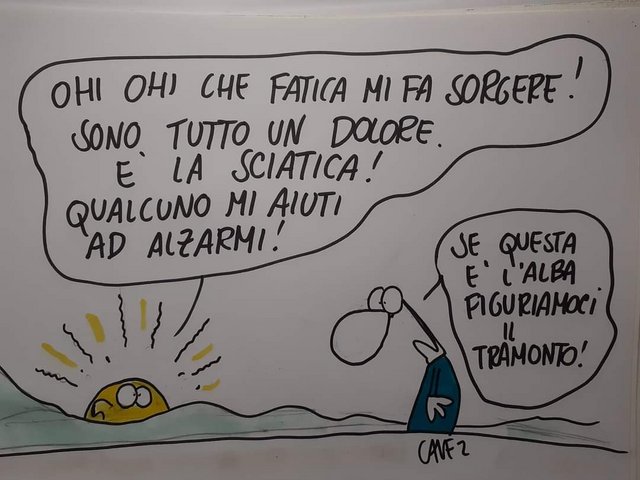 OHI OHI CHE FATICA MI FA SORGERE!
SONO TUTTO UN DOLORE.
E' LA SCIATICA!
QUALCUNO MI AIUTI
AD ALZARMI!
SE QUESTA
E' L'ALBA
FIGURIAMOCI
IL
TRAMONTO!
CAVEZ